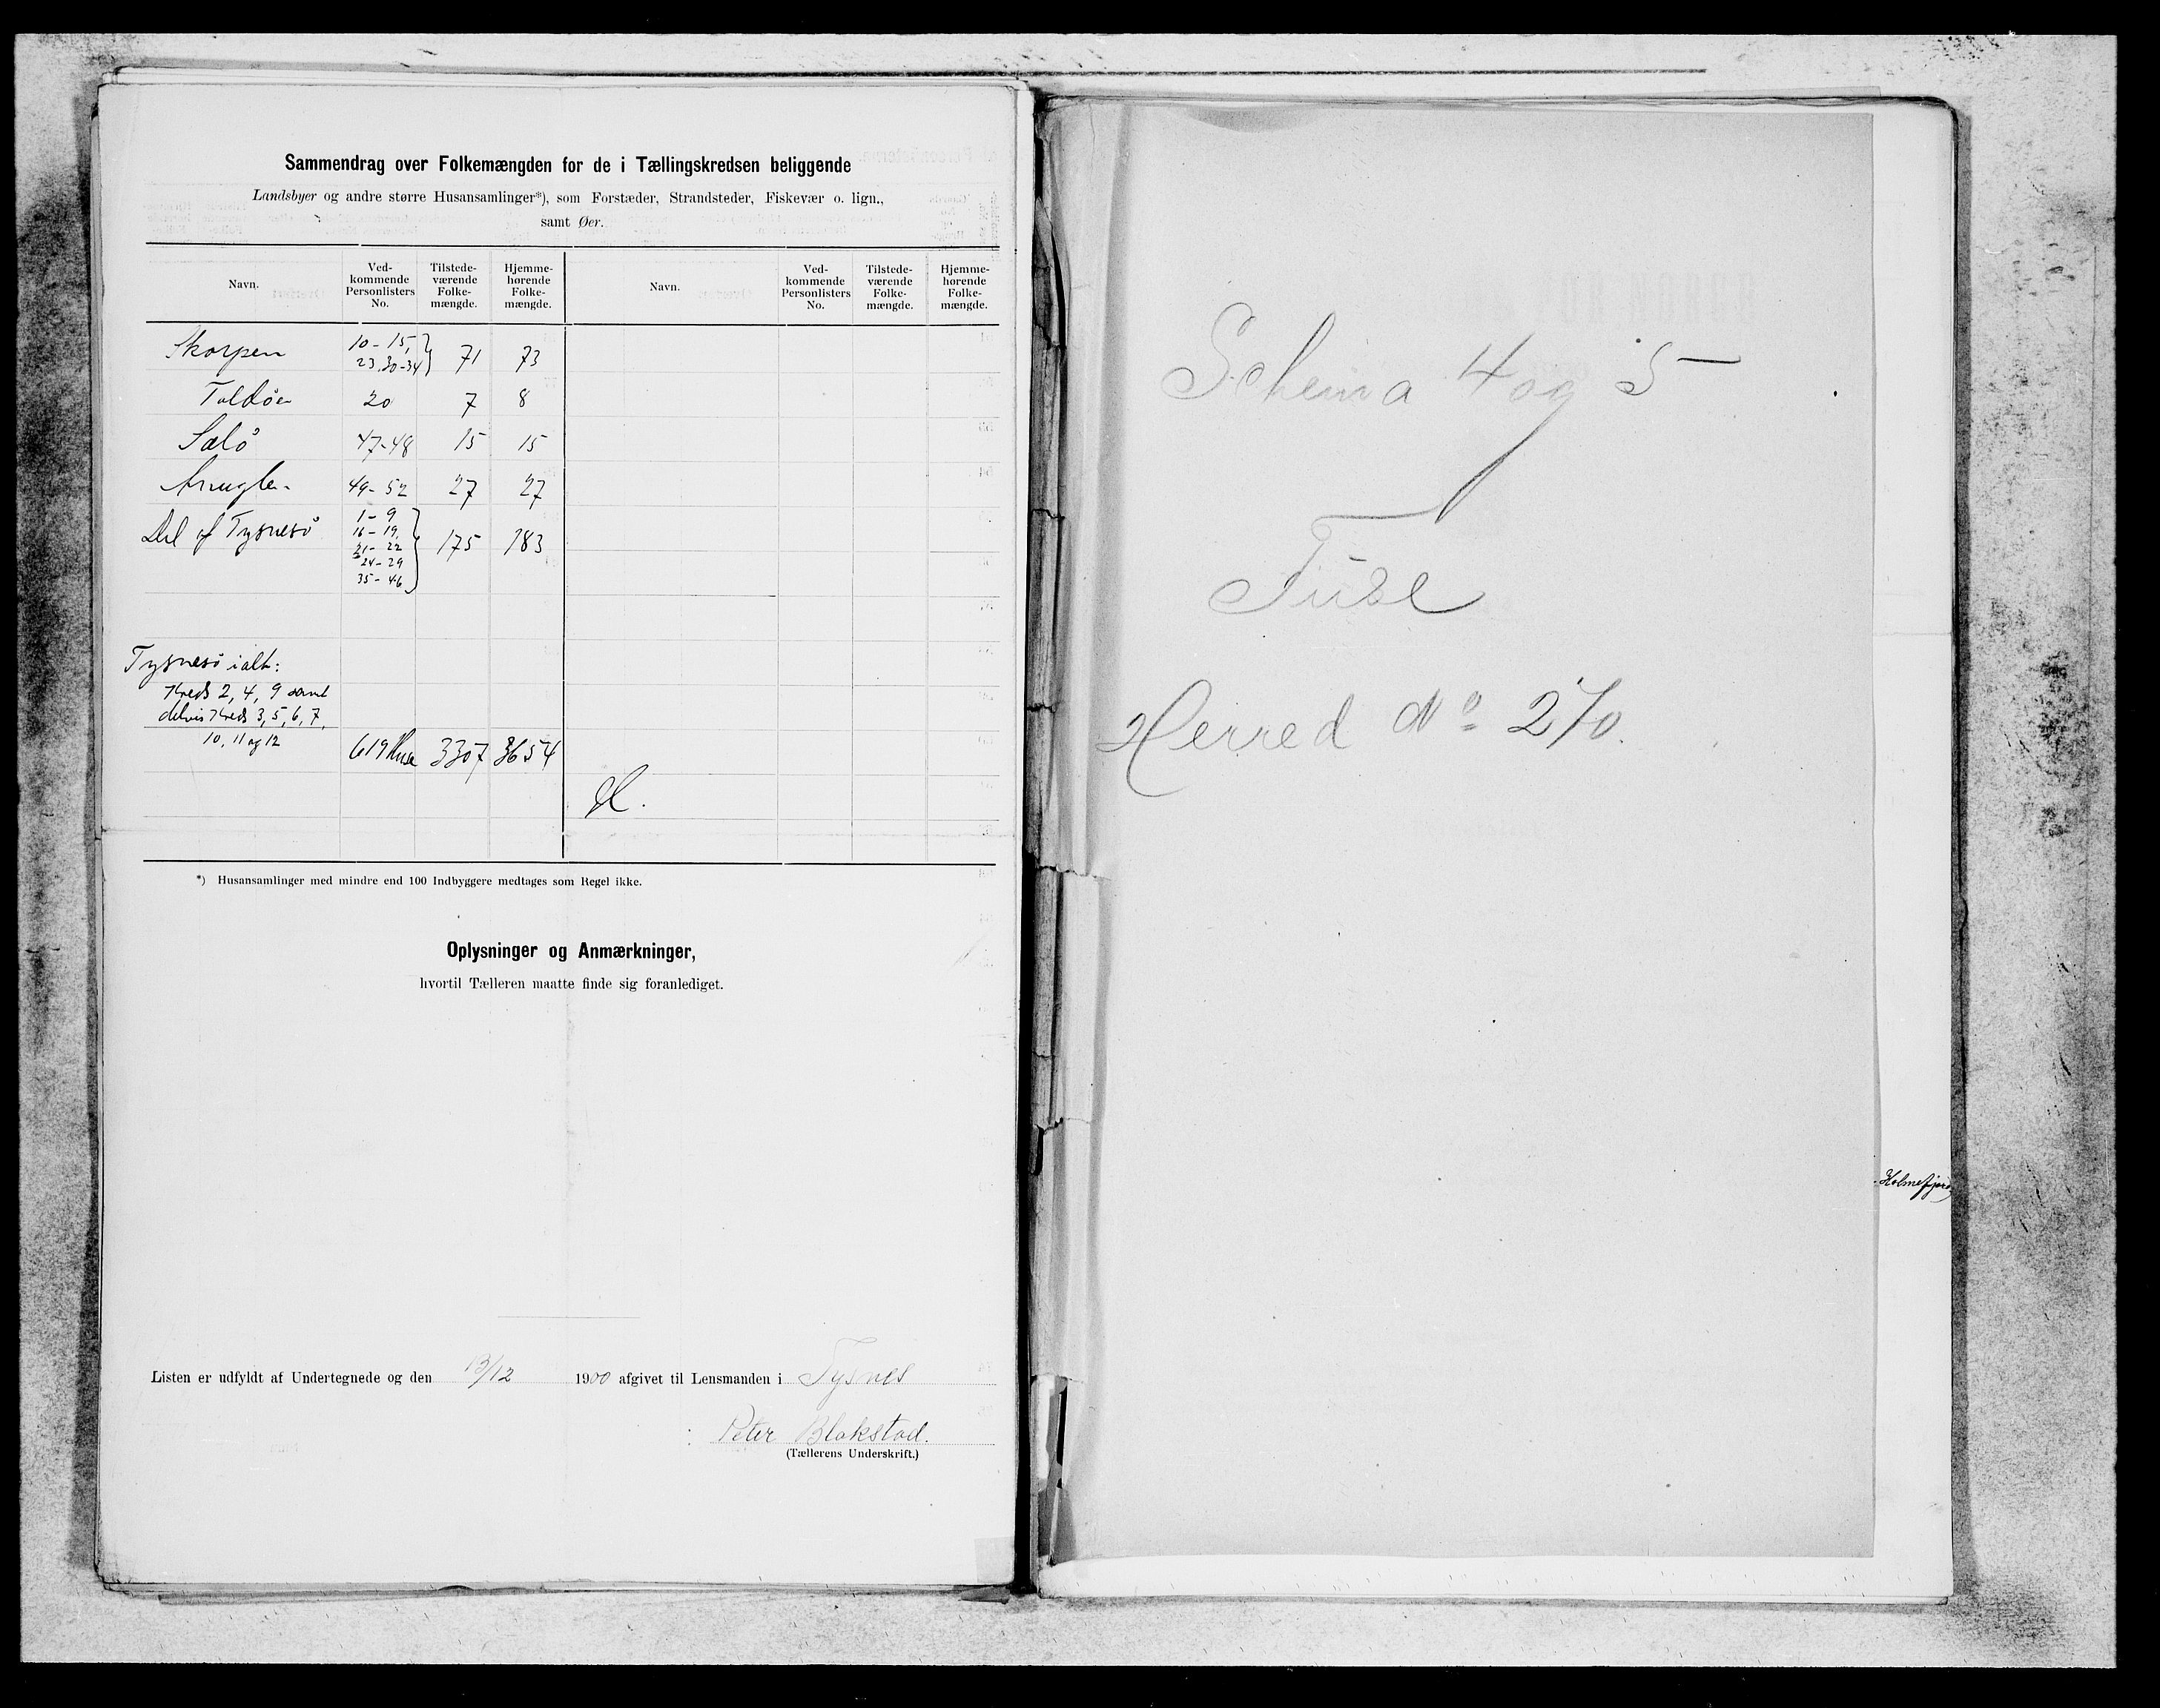 Sammendrag over Folkemængden for de i Tællingskredsen beliggende
Landsbyer og andre større Husansamlinger*), som Forstæder, Strandsteder, Fiskevær o. lign.,
samt Øer.
Navn. Ved-kommende Personlisters No. Tilstede-værende Folke-mængde. Hjemme-hørende Folke-mængde. Navn. Ved-kommende Personlisters No. Tilstede-værende Folke-mængde. Hjemme-hørende Folke-mængde.
Skorpen 10-15, 23.30-34 71 73
Toldøen 20 7 8
Sælø 47-48 15 15
Anuglen 49-52 27 27
Del af Tysnesø 1-9 16-19, 21-22 24-29 35-46 175 183
Tysnesø ialt:
Kreds 2, 4, 9 samt
delvis Kreds 3, 5, 6, 7,
10, 11 og 12 619 Huse 3307 3654
*) Husansamlinger med mindre end 100 Indbyggere medtages som Regel ikke.
Oplysninger og Anmærkninger,
hvortil Tælleren maatte finde sig foranlediget.
Listen er udfyldt af Undertegnede og den 13/12 1900 afgivet til Lensmanden i Tysnes
Peter Blakstad.
(Tællerens Underskrift.)
Schema 4 og 5
Fuse
Herred No 270.
Holmefjord